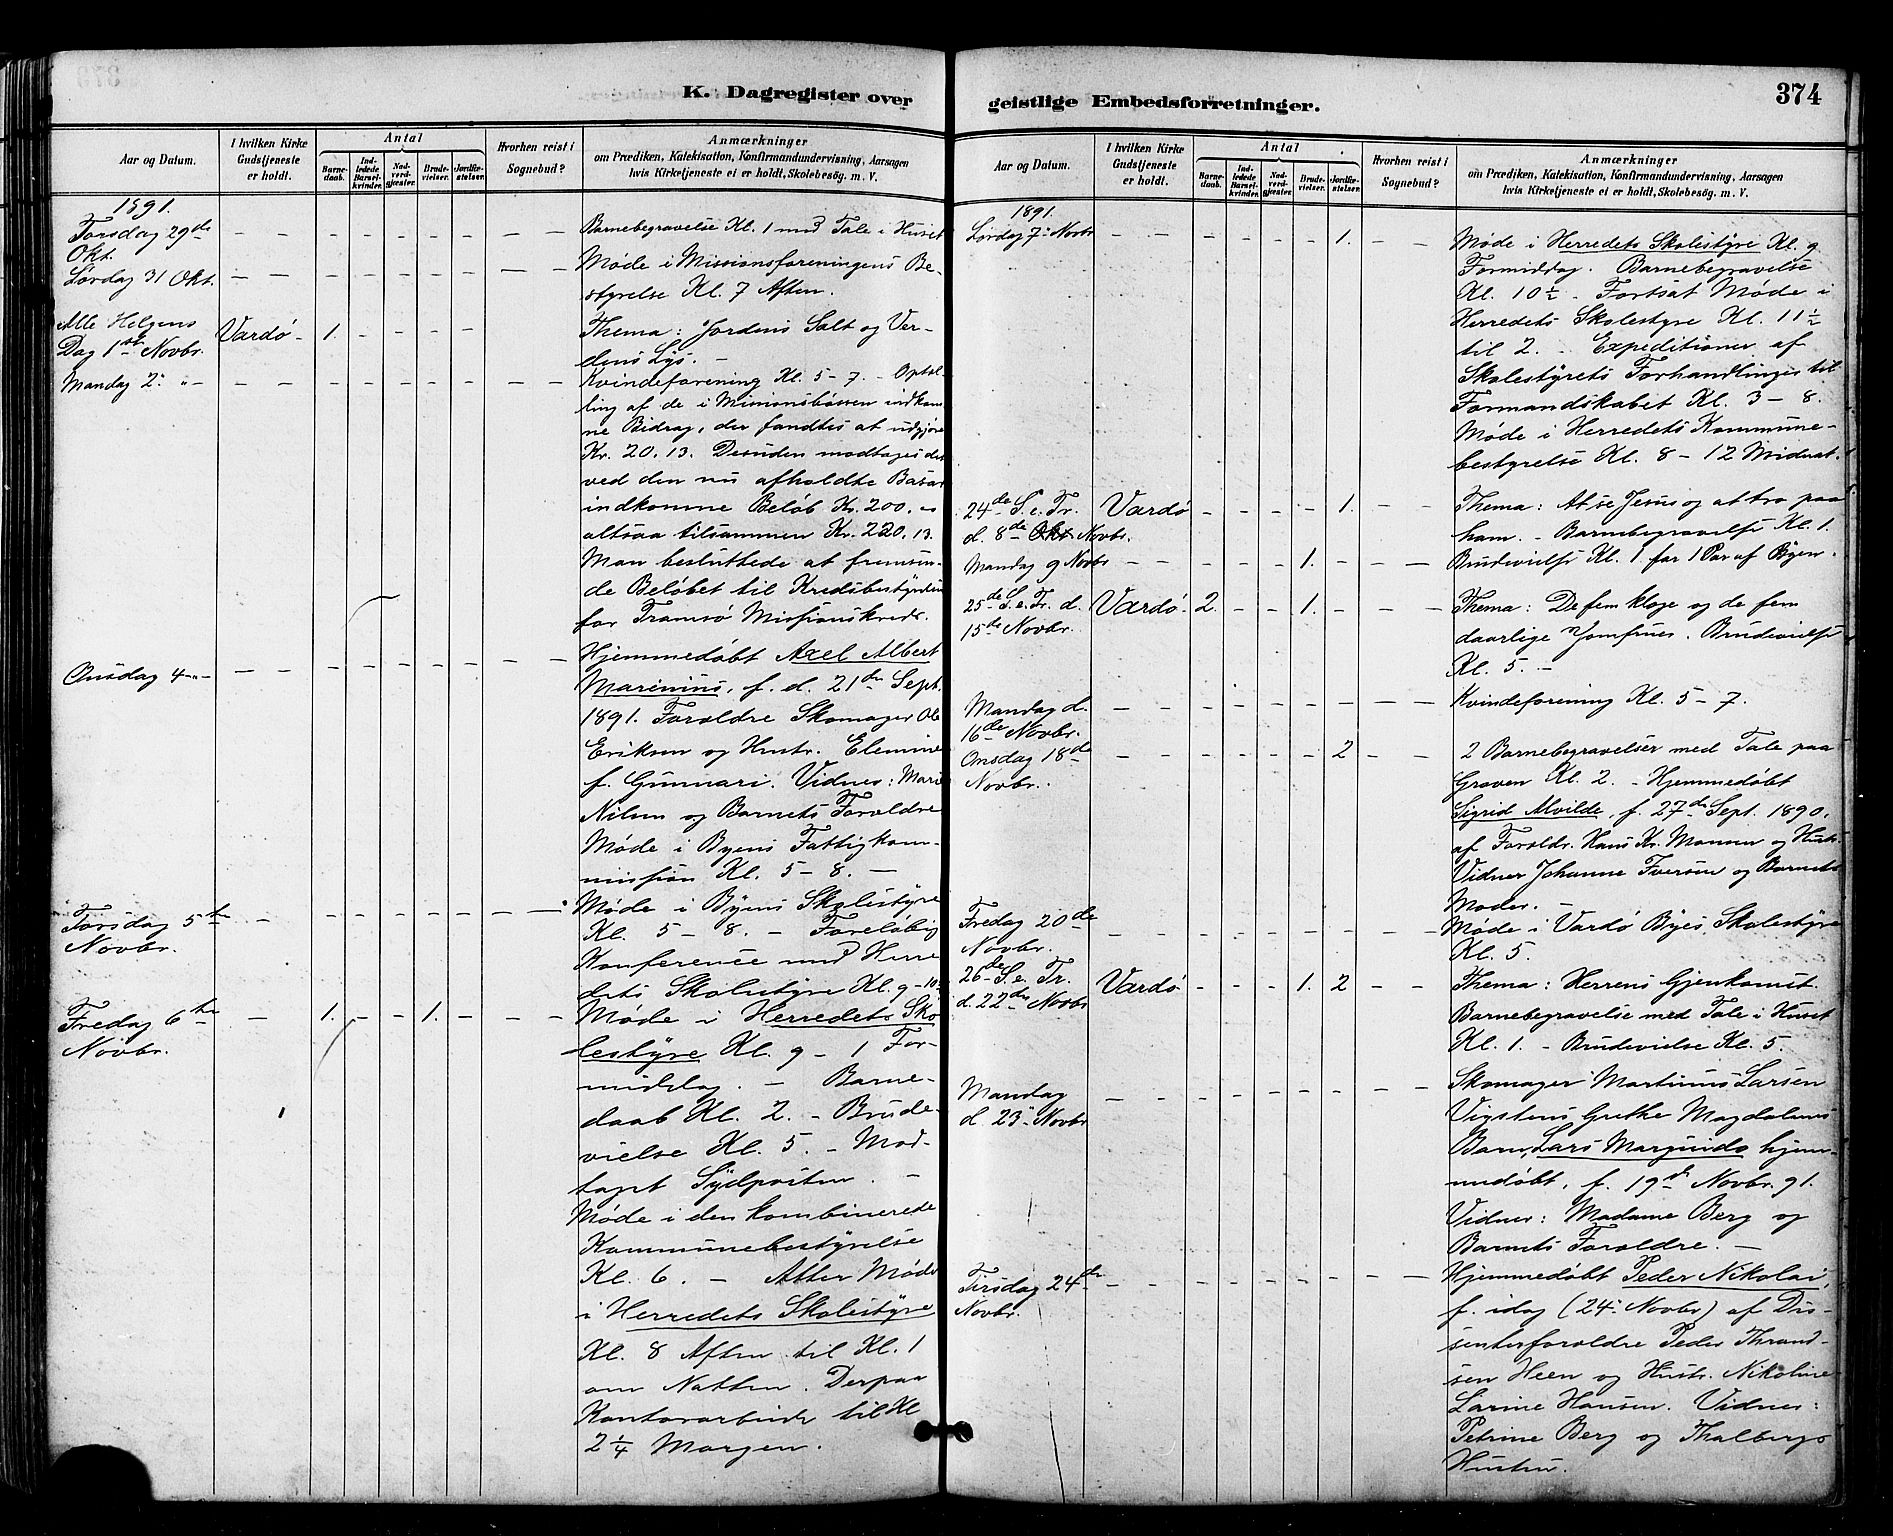 K. Dagregister over
Aar og Datum.
I hvilken Kirke Gudstjeneste er holdt.
Antal
Barnedaab.
Indledede Barselkvinder.
Nadverdgjester.
Brudevielser.
Jordfæstelser.
Hvorhen reist i Sognebud?
Anmærkninger
om Prædiken, Katekisation, Konfirmandundervisning, Aarsagen
hvis Kirketjeneste ei er holdt, Skolebesøg. m. V.
1891.
Torsdag 29de Okt.
Barnebegravelse Kl. 1 med Tale i Huset
Lørdag 31 Okt.
Møde i Missionsforeningens Be-
styrelse Kl. 7 Aften.
Alle Helgens
Dag 1ste Novbr.
Vardø
1.
Thema: Jordens Salt og Ver-
dens Lys. –
Mandag 2. "
Kvindeforening Kl. 5-7. – Optæl-
ling af de i Missionsbøssen indkom-
ne Bidrag, der fandtes at udgjøre
Kr. 20.13. Desuden modtages det
ved den nu afholdte Basar
indkomne Beløb Kr. 200. –
altsaa tilsammen Kr. 220.13.
Man besluttede at fremsen-
de Beløbet til Kredsbestyrelsen
for Tromsø Missionskreds.
Onsdag 4 "
Hjemmedøbt Axel Albert
Marenius, f. d. 21de Sept.
1891. Forældre Skomager Ole
Eriksen og Hustr. Elemine
f. Gunnari. Vidnes: Marie
Nilsen og Barnets Forældre
Møde i Byens Fattigkom-
mission Kl. 5-8. –
Torsdag 5te
Novbr.
Møde i Byens Skolestyre
Kl. 5-8. – Foreløbig
Konference med Herre
dets Skolestyre Kl. 9-10
Fredag 6te
Novbr.
1.
1.
Møde i Herredets Sko
lestyre Kl. 9-1 For-
middag. – Barne-
daab Kl. 2. – Brude-
vielse Kl. 5. – Mod-
taget Sydposten. –
Møde i den kombinerede
Kommunebestyrelse
Kl. 6. – Atter Møde
i Herredets Skolestyre
Kl. 8 Aften til Kl. 1
om Natten. Derpaa
Kontorarbeide til Kl
2 1/4 Morgen.
geistlige Embedsforretninger.
374
Aar og Datum.
I hvilken Kirke Gudstjeneste er holdt.
Antal
Barnedaab.
Indledede Barselkvinder.
Nadverdgjester.
Brudevielser.
Jordfæstelser.
Hvorhen reist i Sognebud?
Anmærkninger
om Prædiken, Katekisation, Konfirmandundervisning, Aarsagen
hvis Kirketjeneste ei er holdt, Skolebesøg m. V.
1891.
Lørdag 7. Novbr
1.
Møde i Herredets Skolestyre Kl. 9
Formiddag. Barnebegravelse
Kl. 10 1/2 – Fortsat Møde i
Herredets Skolestyre Kl. 11 1/2
til 2. – Expeditioner af
Skolestyrets Forhandlinger til
Formandskabet Kl. 3-8.
Møde i Herredets Kommune-
bestyrelse Kl. 8-12 Midnat.
24de S. e. Tr.
d. 8de Okt Novbr.
Vardø
1.
Thema: At se Jesus og at tro paa
ham. – Barnebegravelse Kl. 1.
Mandag 9 Novbr
1.
Brudevielse Kl. 1 for 1 Par af Byen.
25de S. e. Tr. d.
15de Novbr.
Vardø
2.
1.
Thema: De fem kloge og de fem
daarlige Jomfruer. Brudevielse
Kl. 5. –
Mandag d.
16de Novbr.
Kvindeforening Kl. 5-7.
Onsdag 18de
Novbr.
2
2 Barnebegravelser med Tale paa
Graven Kl. 2. – Hjemmedøbt
Sigrid Alvilde, f. 27de Sept. 1890.
af Forældr. Hans Kr. Monsen og Hustr
Vidner Johanne Iversen og Barnets
Moder. –
Fredag 20de
Novbr.
Møde i Vardø Byes Skolestyre
Kl. 5.
26de S. e. Tr.
d. 22de Novbr
Vardø
1.
2
Thema: Herrens Gjenkomst.
Barnebegravelse med Tale i Huset
Kl. 1. – Brudevielse Kl. 5.
Mandag
d. 23. Novbr
Skomager Martinus Larsen
Vigstens Grethe Magdalenes
Barn, Lars Marquido hjem-
medøbt, f. 19de Novbr. 91.
Vidner: Madame Berg og
Barnets Forældre. –
Tirsdag 24de
Novbr.
Hjemmedøbt Peder Nikolai,
f. idag (24. Novbr) af Dis-
senterforældre Peder Thrond-
sen Heen og Hustr. Nikoline
Larine Hansen. Vidnes:
Petrine Berg og Thalbergs
Hustru.